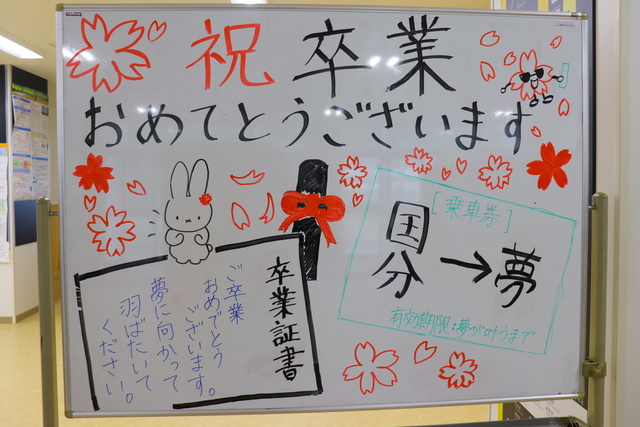 祝卒業
おめでとうございます
卒業証書
ご卒業
おめでとう
ございます。
夢に向かって
羽ばたいて
ください。
[乗車券]
国分→夢
有効期限:夢が叶うまで